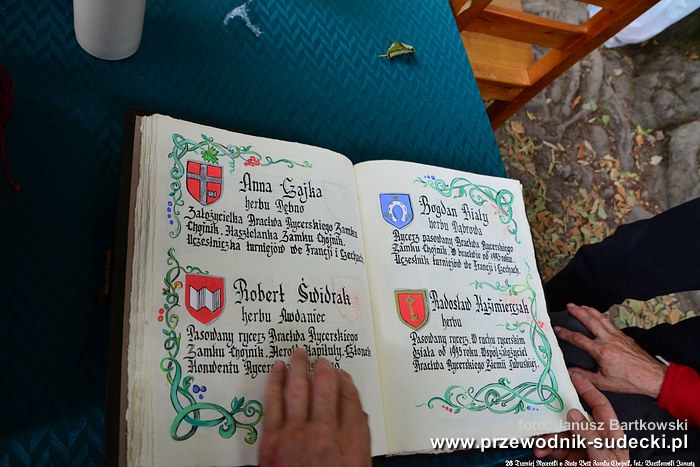 Anna Gajka
herbu Dębno
Założycielka Bractwa Rycerskiego Zamku
Chojnik, Kasztelanka Zamku Chojnik.
Uczestniczka turniejów we Francji i Czechach
Robert Świdrak
herbu Awdaniec
Pasowany rycerz Bractwa Rycerskiego
Zamku Chojnik. Herold Kapituły-Członek
Konwentu Rycerskiego
Bogdan Biały
herbu Dąbrowa
Rycerz pasowany Bractwa Rycerskiego
Zamku Chojnik. W bractwie od 1993 roku.
Uczestnik turniejów we Francji i Czechach.
Radosław Kaźmierczak
herbu
Pasowany rycerz. W ruchu rycerskim
działa od 1995 roku. Współzałożyciel
Bractwa Rycerskiego Ziemii Lubuskiej.
foto: Janusz Bartkowski
www.przewodnik-sudecki.pl
26 Turniej Rycerski o Złoty Bełt Zamku Chojnik, fot. Bartkowski Janusz